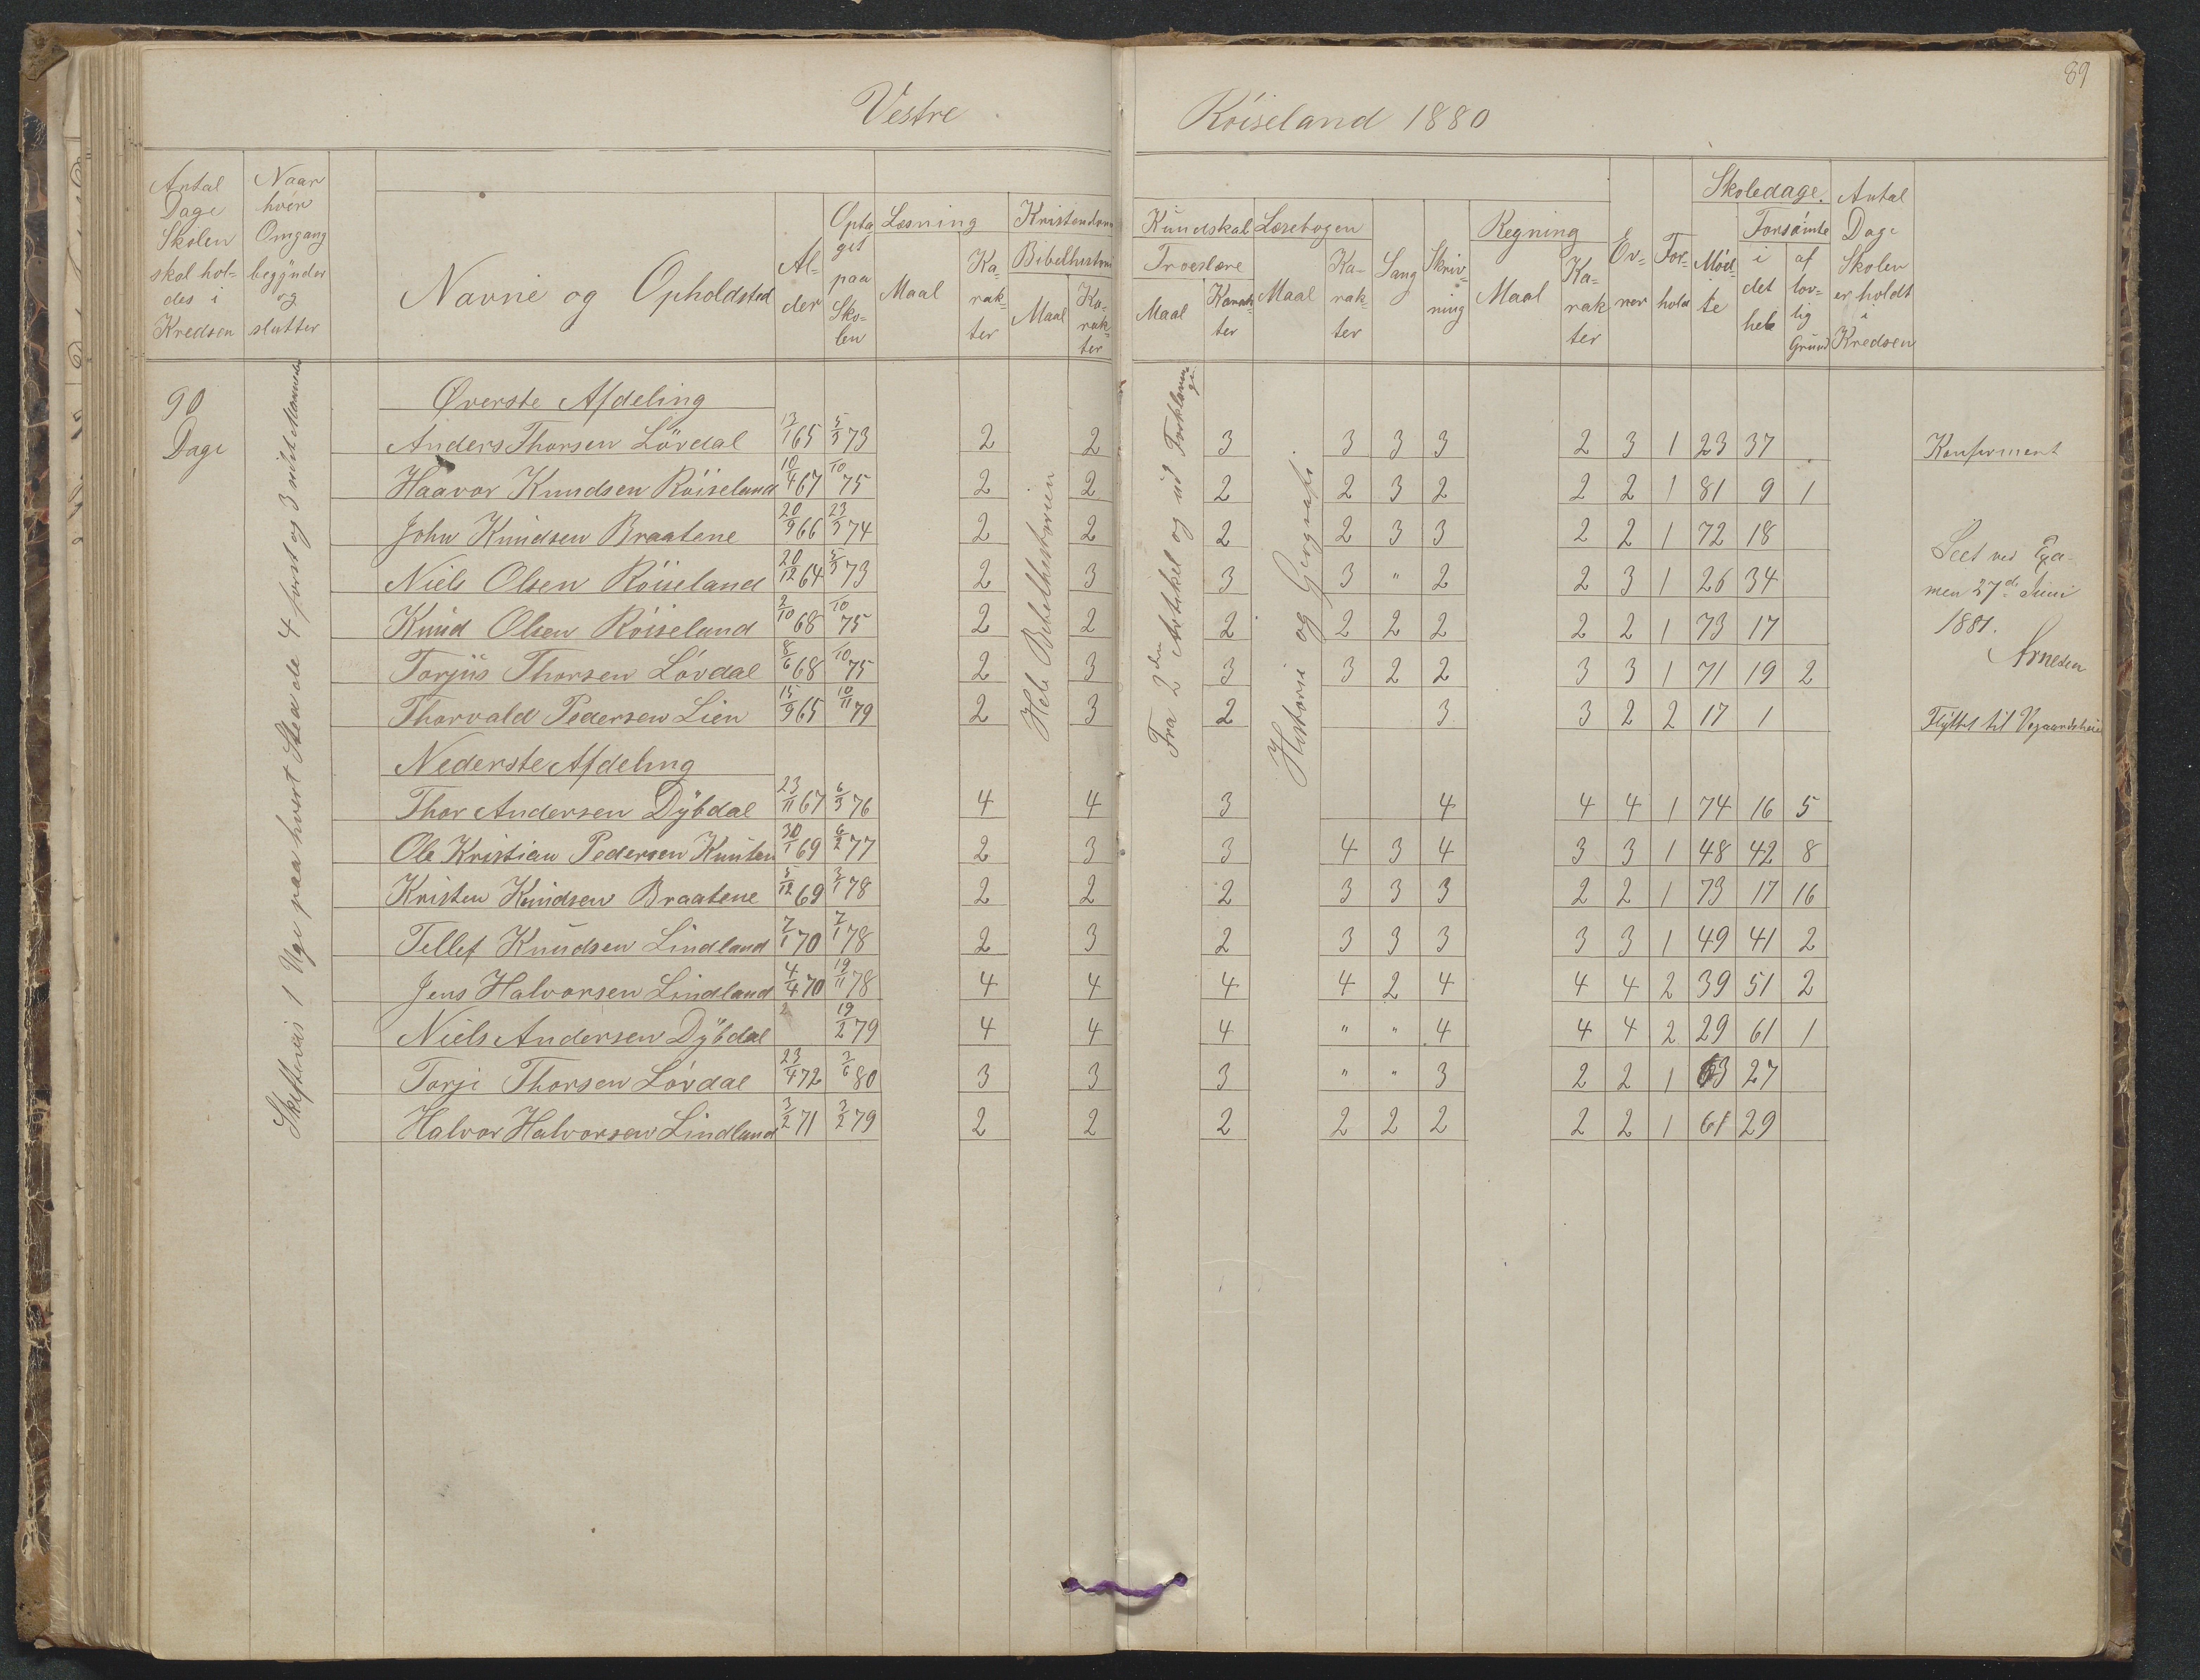 89
Vestre Röiseland 1880
Antal Dage Skolen skal holdes i Kredsen
Naar hver Omgang begÿnder og slutter
Navne og Opholdsted
Alder
Optaget paa Skolen
Læsning
Maal
Karakter
Kristendoms Kundskab
Bibelhistorie
Maal
Karakter
Troeslære
Maal
Karakter
Læsebogen
Maal
Karakter
Sang
Skrivning
Regning
Maal
Karakter
Evner
Forhold
Skoledage.
Mödte
Forsömte
i det hele
af lovlig Grund
Antal Dage Skolen er holdt i Kredsen
90 Dage
Skiftevis 1 Uge paa hvert Sted de 4 först og 3 sidste Maaneder
Hele Bibelhistorien
Fra 2den Artikel og ud Forklaringe
Historie og Geografi
Øverste Afdeling
Anders Thorsen Lövdal 13/1 65 5/3 73 2 2 3 3 3 3 2 3 1 23 37 Konfirmert
Haavor Knudsen Röiseland 10/4 67 /10 75 2 2 2 2 3 2 2 2 1 81 9 1
John Knudsen Braatene 20/9 66 23/3 74 2 2 2 2 3 3 2 2 1 72 18
Niels Olsen Röiseland 20/12 64 5/3 73 2 3 3 3 " 2 2 3 1 26 34
Knud Olsen Röiseland 2/10 68 /10 75 2 2 2 2 2 2 2 2 1 73 17
Torjus Thorsen Lövdal 8/6 68 /10 75 2 3 3 3 2 2 3 3 1 71 19 2
Thorvald Pedersen Lien 15/9 65 10/11 79 2 3 2 3 3 2 2 17 1 Flÿttet til Vegaardsheien
Seet ved Examen 27de Juni 1881.
Arnesen
Nederste Afdeling
Thor Andersen Dÿbdal 23/11 67 6/3 76 4 4 3 4 4 4 1 74 16 5
Ole Kristian Pedersen Knuten 30/1 69 6/2 77 2 3 3 4 3 4 3 3 1 48 42 8
Kristen Knudsen Braatene 5/12 69 3/1 78 2 2 2 3 3 3 2 2 1 73 17 16
Tellef Knudsen Lindland 7/1 70 7/1 78 2 3 2 3 3 3 3 3 1 49 41 2
Jens Halvorsen Lindland 4/4 70 19/11 78 4 4 4 4 2 4 4 4 2 39 51 2
Niels Andersen Dÿbdal 2 19/2 79 4 4 4 " " 4 4 4 2 29 61 1
Torje Thorsen Lövdal 23/4 72 3/6 80 3 3 3 " " 3 2 2 1 63 27
Halvor Halvorsen Lindland 3/2 71 3/2 79 2 2 2 2 2 2 2 2 1 61 29